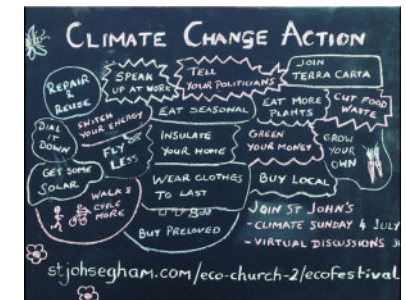 CLIMATE CHANGE ACTION
REPAIR
&
REUSE
SPEAK
UP AT WORK
TELL
YOUR POLITICIANS
JOIN
TERRA CARTA
DIAL
IT
DOWN
SWITCH
YOUR ENERGY
EAT SEASONAL
EAT MORE
PLANTS
CUT FOOD
WASTE
FLY
LESS
INSULATE
YOUR HOME
GREEN
YOUR MONEY
GROW
YOUR
OWN
GET SOME
SOLAR
WEAR CLOTHES
TO LAST
BUY LOCAL
WALK &
CYCLE
MORE
BUY PRELOVED
JOIN ST JOHN'S
- CLIMATE SUNDAY 4 JULY
- VIRTUAL DISCUSSIONS
stjohsegham.com/eco-church-2/ecofestival